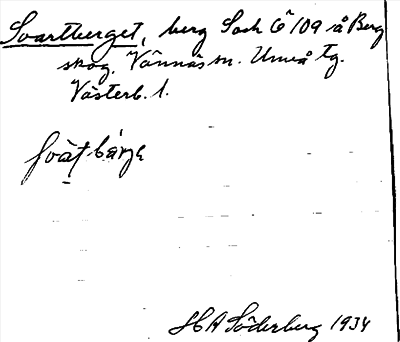 Svartberget, berg S och Ö /09 å Berg
skog, Vännäs sn. Umeå tg.
Västerb. l.
svàʈbárjə
H A Söderberg 1934